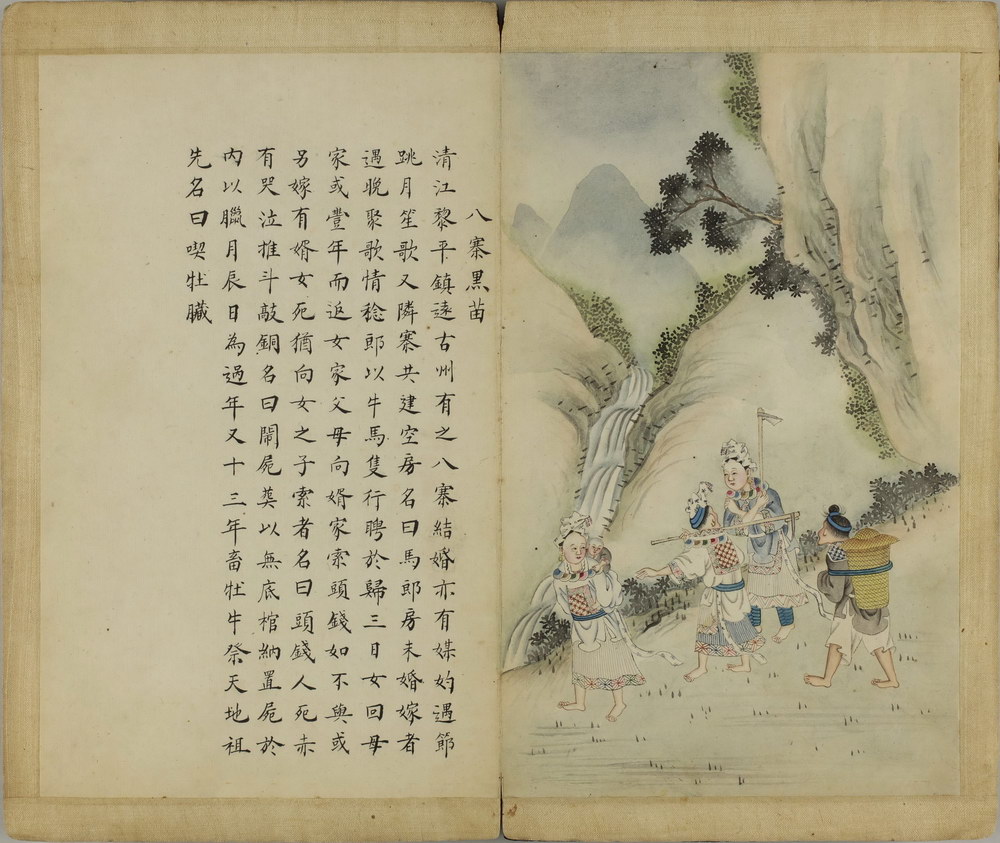 八寨黑苗
清江黎平鎮遠古州有之八寨結婚亦有媒妁遇節
跳月笙歌又隣寨共建空房名曰馬郎房未婚嫁者
遇晚聚歌情稔郎以牛馬隻行聘於歸三日女回母
家或豐年而返女家父母向婿家索頭錢如不與或
另嫁有婿女死猶向女之子索者名曰頭錢人死亦
有哭泣推斗敲銅名曰鬧屍葬以無底棺納置屍於
內以臘月辰日為過年又十三年畜牡牛祭天地祖
先名曰喫牡臟